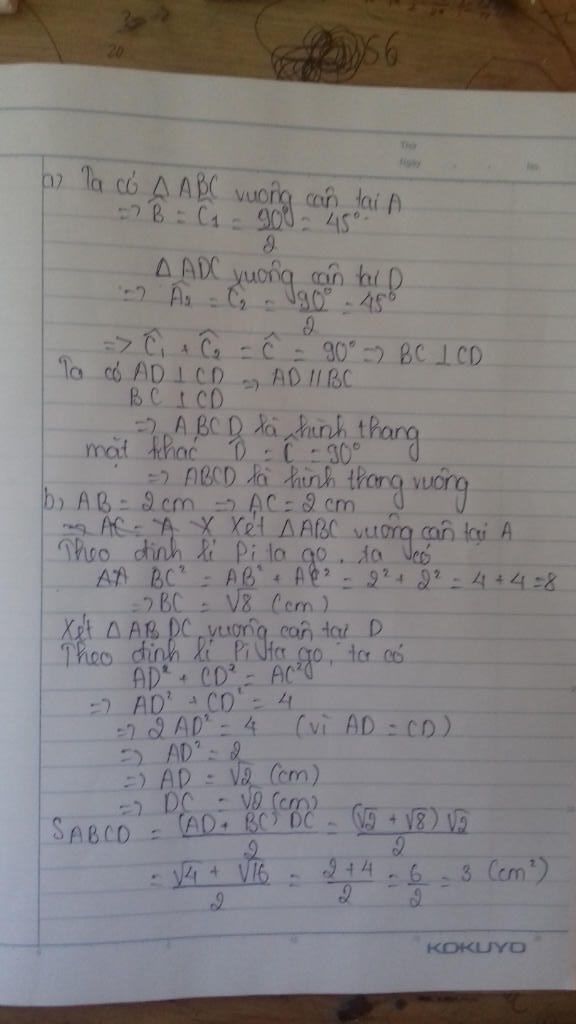 56
20
Thứ
Ngày No.
a, Ta có △ ABC vuông cân tại A
=> B̂ = Ĉ1 = 90°/2 = 45°
△ ADC vuông cân tại D
=> Â2 = Ĉ2 = 90°/2 = 45°
=> Ĉ1 + Ĉ2 = Ĉ = 90° => BC ⊥ CD
Ta có AD ⊥ CD => AD // BC
BC ⊥ CD
=> ABCD là hình thang
mặt khác D̂ = Ĉ = 90°
=> ABCD là hình thang vuông
b, AB = 2 cm => AC = 2 cm
Xét △ ABC vuông cân tại A
Theo định lí Pi ta go, ta có
BC² = AB² + AC² = 2² + 2² = 4 + 4 = 8
=> BC = √8 (cm)
Xét △ ABDC vuông cân tại D
Theo định lí Pi ta go, ta có
AD² + CD² = AC²
=> AD² + CD² = 4
=> 2 AD² = 4 (vì AD = CD)
=> AD² = 2
=> AD = √2 (cm)
=> DC = √2 (cm)
S ABCD = (AD + BC) DC/2 = (√2 + √8) √2/2
= √4 + √16/2 = 2+4/2 = 6/2 = 3 (cm²)
KOKUYO